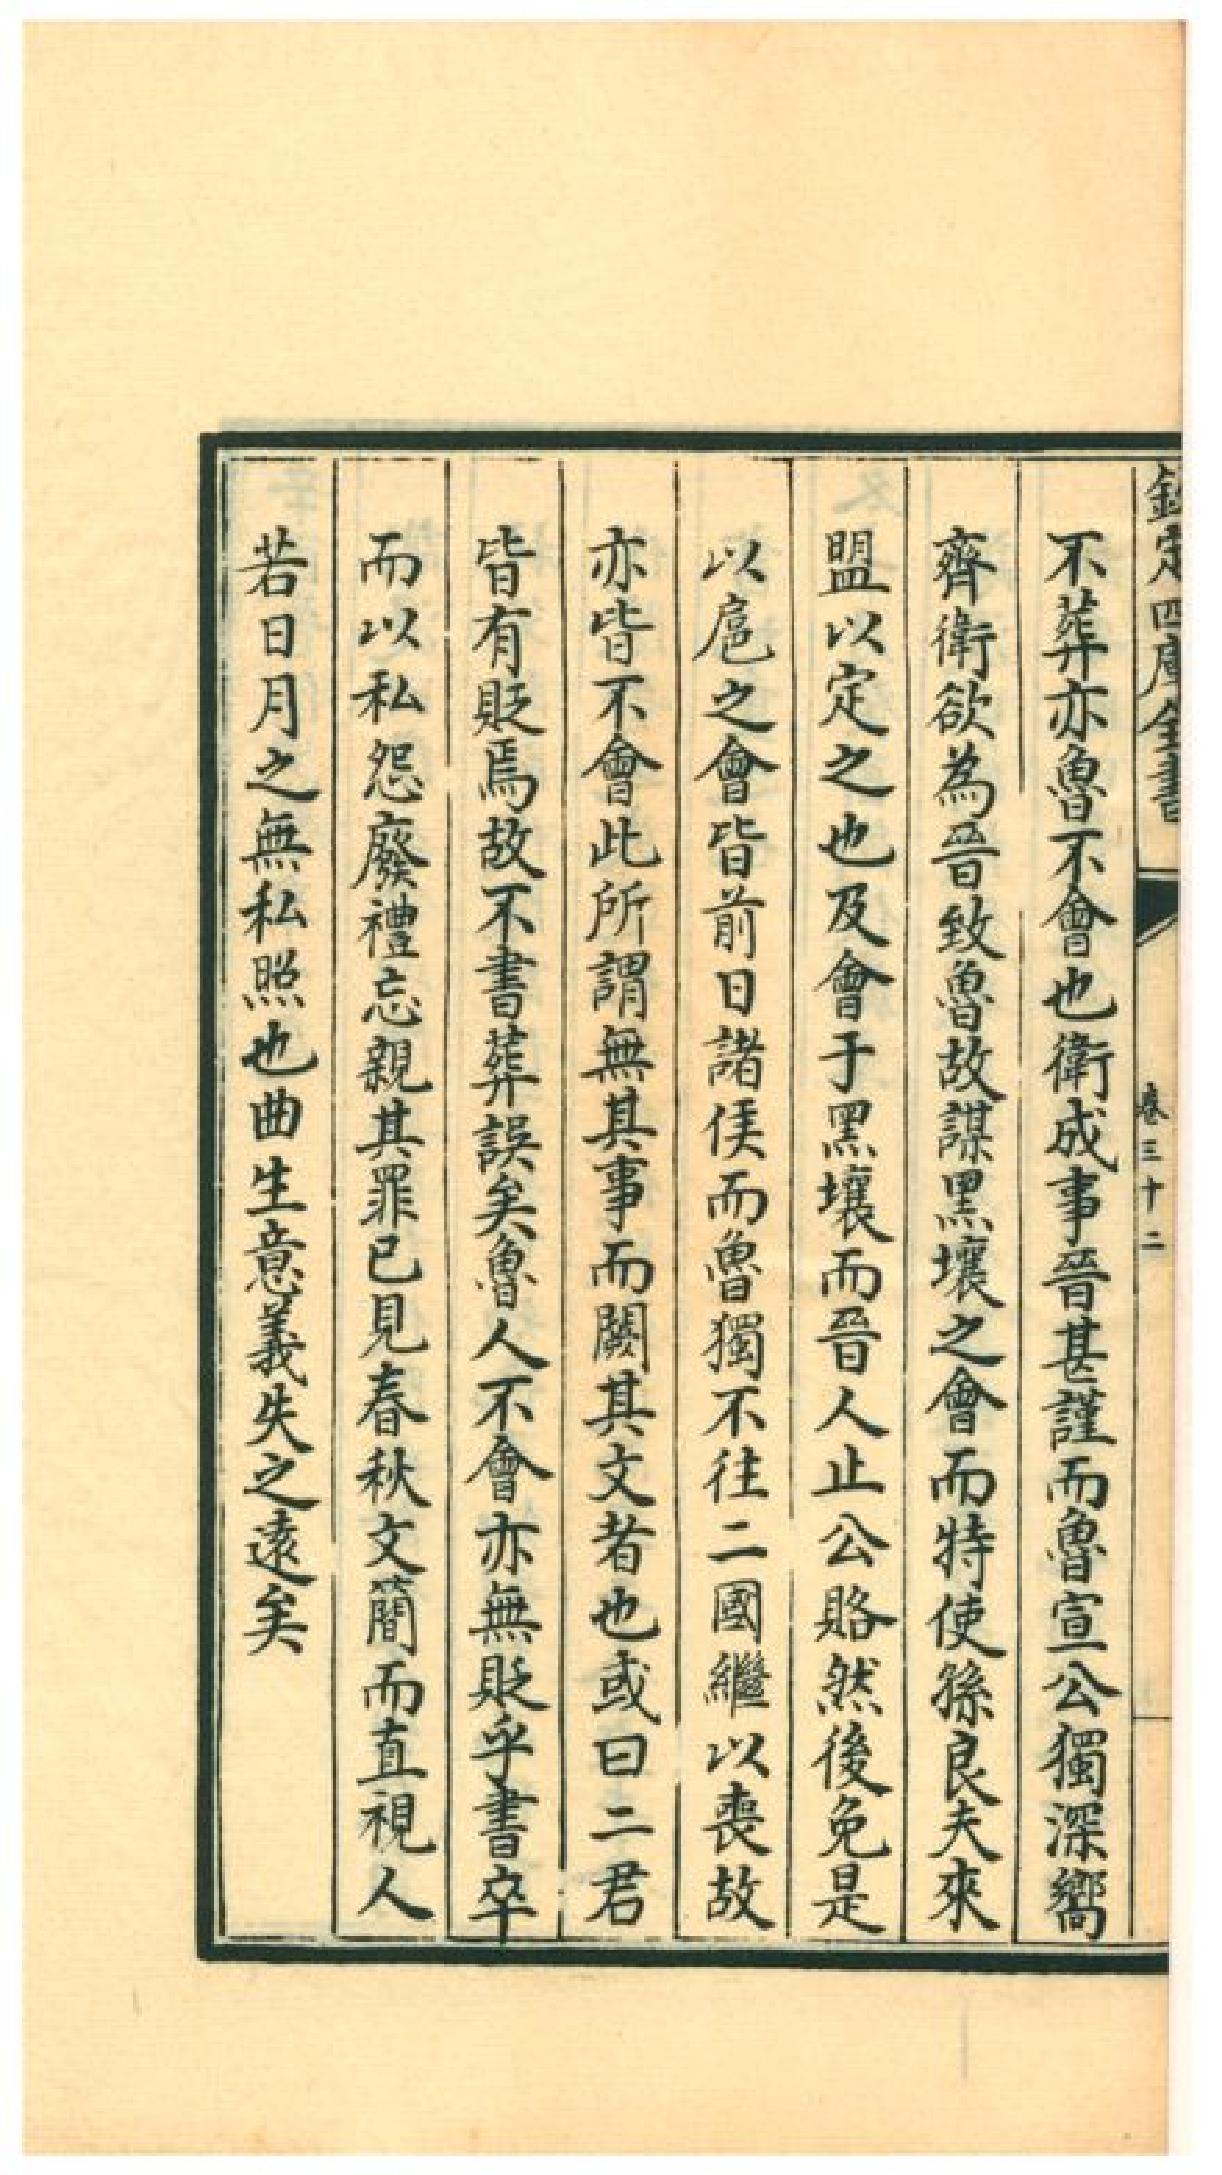 欽定四庫全書
卷三十二
不葬亦魯不會也衛成事晉甚謹而魯宣公獨深嚮
齊衛欲為晉致魯故謀黑壤之會而特使孫良夫來
盟以定之也及會于黑壤而晉人止公賂然後免是
以扈之會皆前日諸侯而魯獨不往二國繼以喪故
亦皆不會此所謂無其事而闕其文者也或曰二君
皆有貶焉故不書葬誤矣魯人不會亦無貶乎書卒
而以私怨廢禮忘親其罪已見春秋文簡而直視人
若日月之無私照也曲生意義失之遠矣